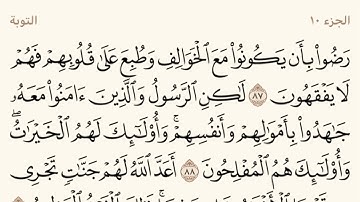 الجزء ١٠
التوبة
رَضُوا۟ بِأَن يَكُونُوا۟ مَعَ ٱلْخَوَالِفِ وَطُبِعَ عَلَىٰ قُلُوبِهِمْ فَهُمْ
لَا يَفْقَهُونَ ٨٧ لَٰكِنِ ٱلرَّسُولُ وَٱلَّذِينَ ءَامَنُوا۟ مَعَهُۥ
جَٰهَدُوا۟ بِأَمْوَٰلِهِمْ وَأَنفُسِهِمْ ۚ وَأُو۟لَٰٓئِكَ لَهُمُ ٱلْخَيْرَٰتُ ۖ
وَأُو۟لَٰٓئِكَ هُمُ ٱلْمُفْلِحُونَ ٨٨ أَعَدَّ ٱللَّهُ لَهُمْ جَنَّٰتٍ تَجْرِى